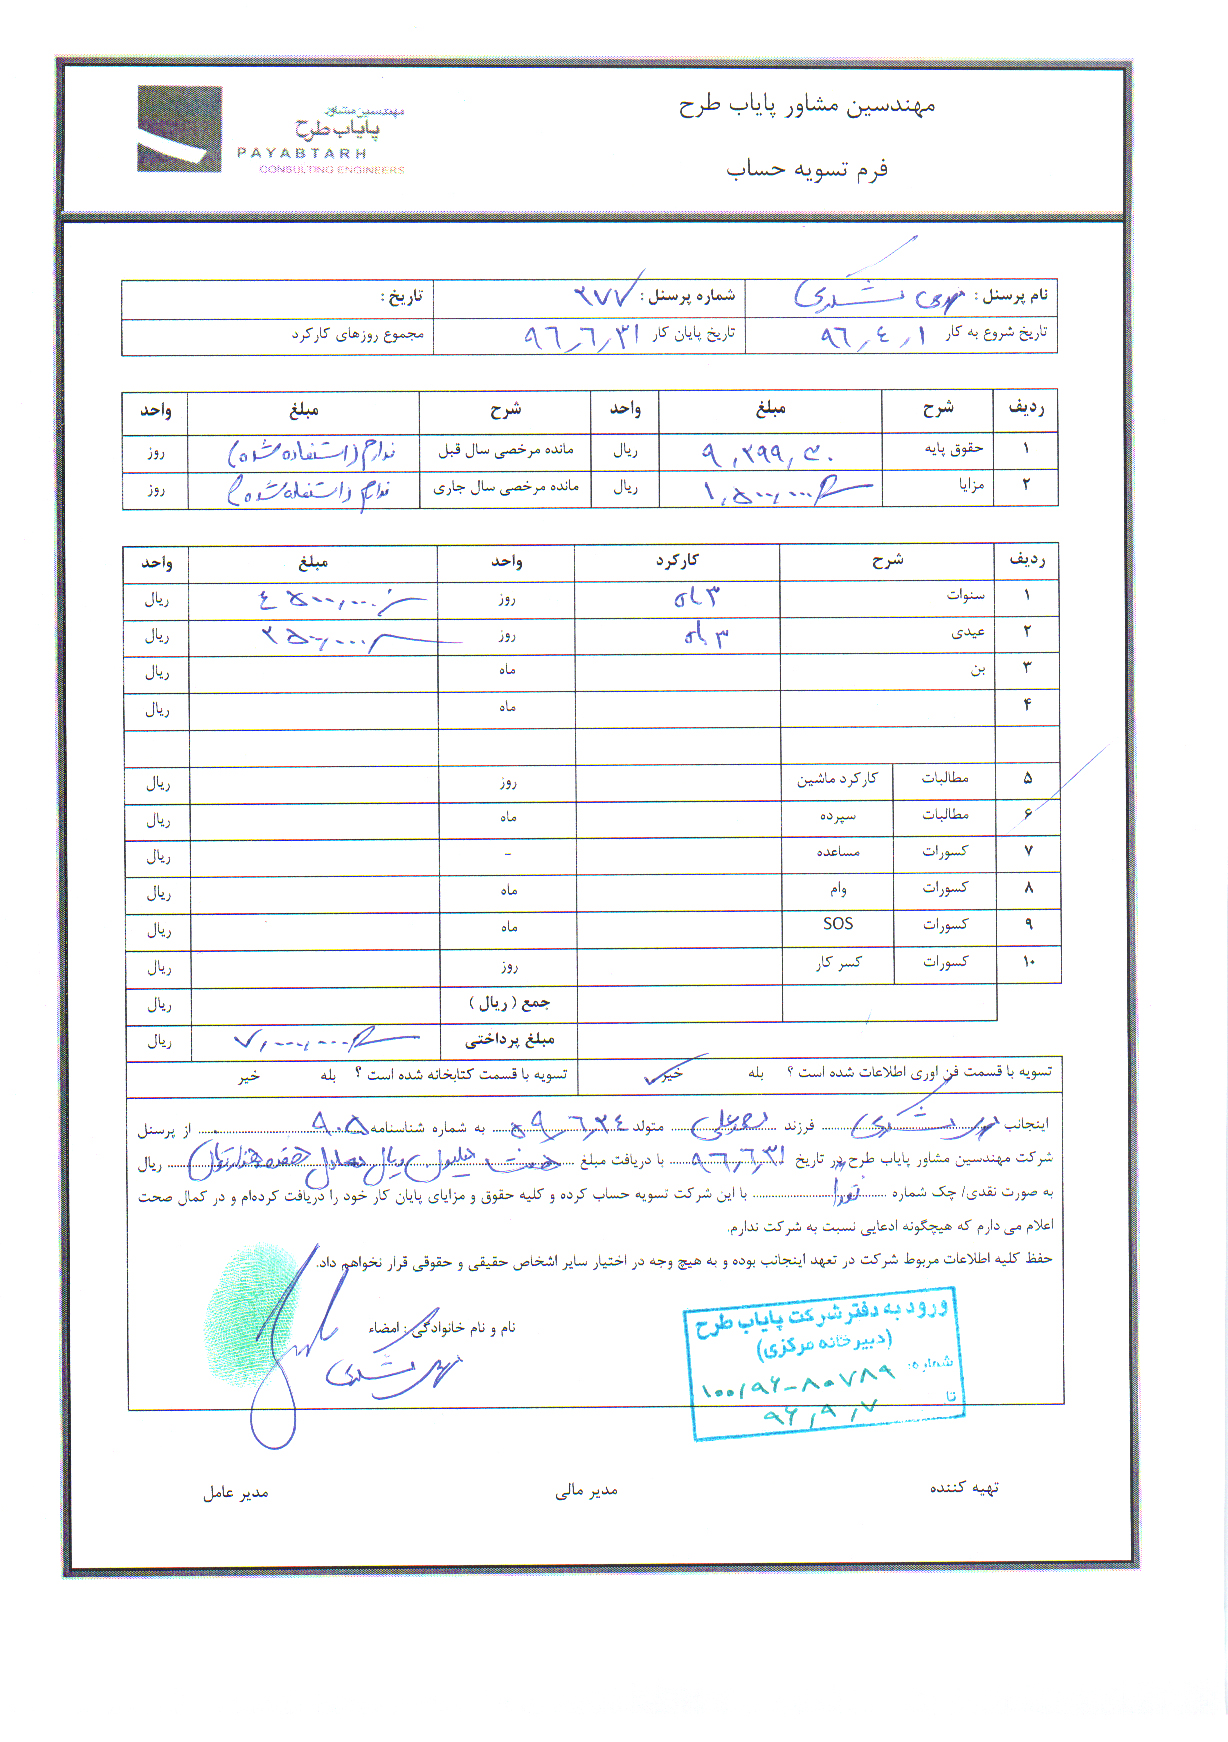 مهندسین مشاور پایاب طرح
مهندسین مشاور
پایاب طرح
PAYABTARH
CONSULTING ENGINEERS
فرم تسویه حساب
نام پرسنل : شماره پرسنل : ۳۷۷ تاریخ :
تاریخ شروع به کار ۹۶,۴,۱ تاریخ پایان کار ۹۶,۶,۳۱ مجموع روزهای کارکرد
ردیف شرح مبلغ واحد شرح مبلغ واحد
۱ حقوق پایه ریال مانده مرخصی سال قبل ندارم (استفاده شده) روز
۲ مزایا ۱,۵۰۰,۰۰۰ ریال مانده مرخصی سال جاری ندارم (استفاده شده) روز
ردیف شرح کارکرد واحد مبلغ واحد
۱ سنوات ۳ ماه روز ۴۵۰۰,۰۰۰ ریال
۲ عیدی ۳ ماه روز ۲۵۰۰,۰۰۰ ریال
۳ بن ماه ریال
۴ ماه ریال
۵ مطالبات کارکرد ماشین روز ریال
۶ مطالبات سپرده ماه ریال
۷ کسورات مساعده - ریال
۸ کسورات وام ماه ریال
۹ کسورات SOS ماه ریال
۱۰ کسورات کسر کار روز ریال
جمع ( ریال ) ریال
مبلغ پرداختی ۷,۰۰۰,۰۰۰ ریال
تسویه با قسمت فن اوری اطلاعات شده است ؟ بله خیر تسویه با قسمت کتابخانه شده است ؟ بله خیر
اینجانب فرزند متولد ۵۹,۶,۲۴ به شماره شناسنامه ۹۰۵ از پرسنل
شرکت مهندسین مشاور پایاب طرح در تاریخ ۹۶,۶,۳۱ با دریافت مبلغ هفت میلیون ریال معادل هفتصد هزار تومان ریال
به صورت نقدی/ چک شماره با این شرکت تسویه حساب کرده و کلیه حقوق و مزایای پایان کار خود را دریافت کرده‌ام و در کمال صحت
اعلام می دارم که هیچگونه ادعایی نسبت به شرکت ندارم.
حفظ کلیه اطلاعات مربوط شرکت در تعهد اینجانب بوده و به هیچ وجه در اختیار سایر اشخاص حقیقی و حقوقی قرار نخواهم داد.
نام و نام خانوادگی : امضاء
ورود به دفتر شرکت پایاب طرح
(دبیرخانه مرکزی)
شماره: ۱۰۰/۹۶-۸۰۷۸۹
تا ۹۶,۹,۷
تهیه کننده مدیر مالی مدیر عامل